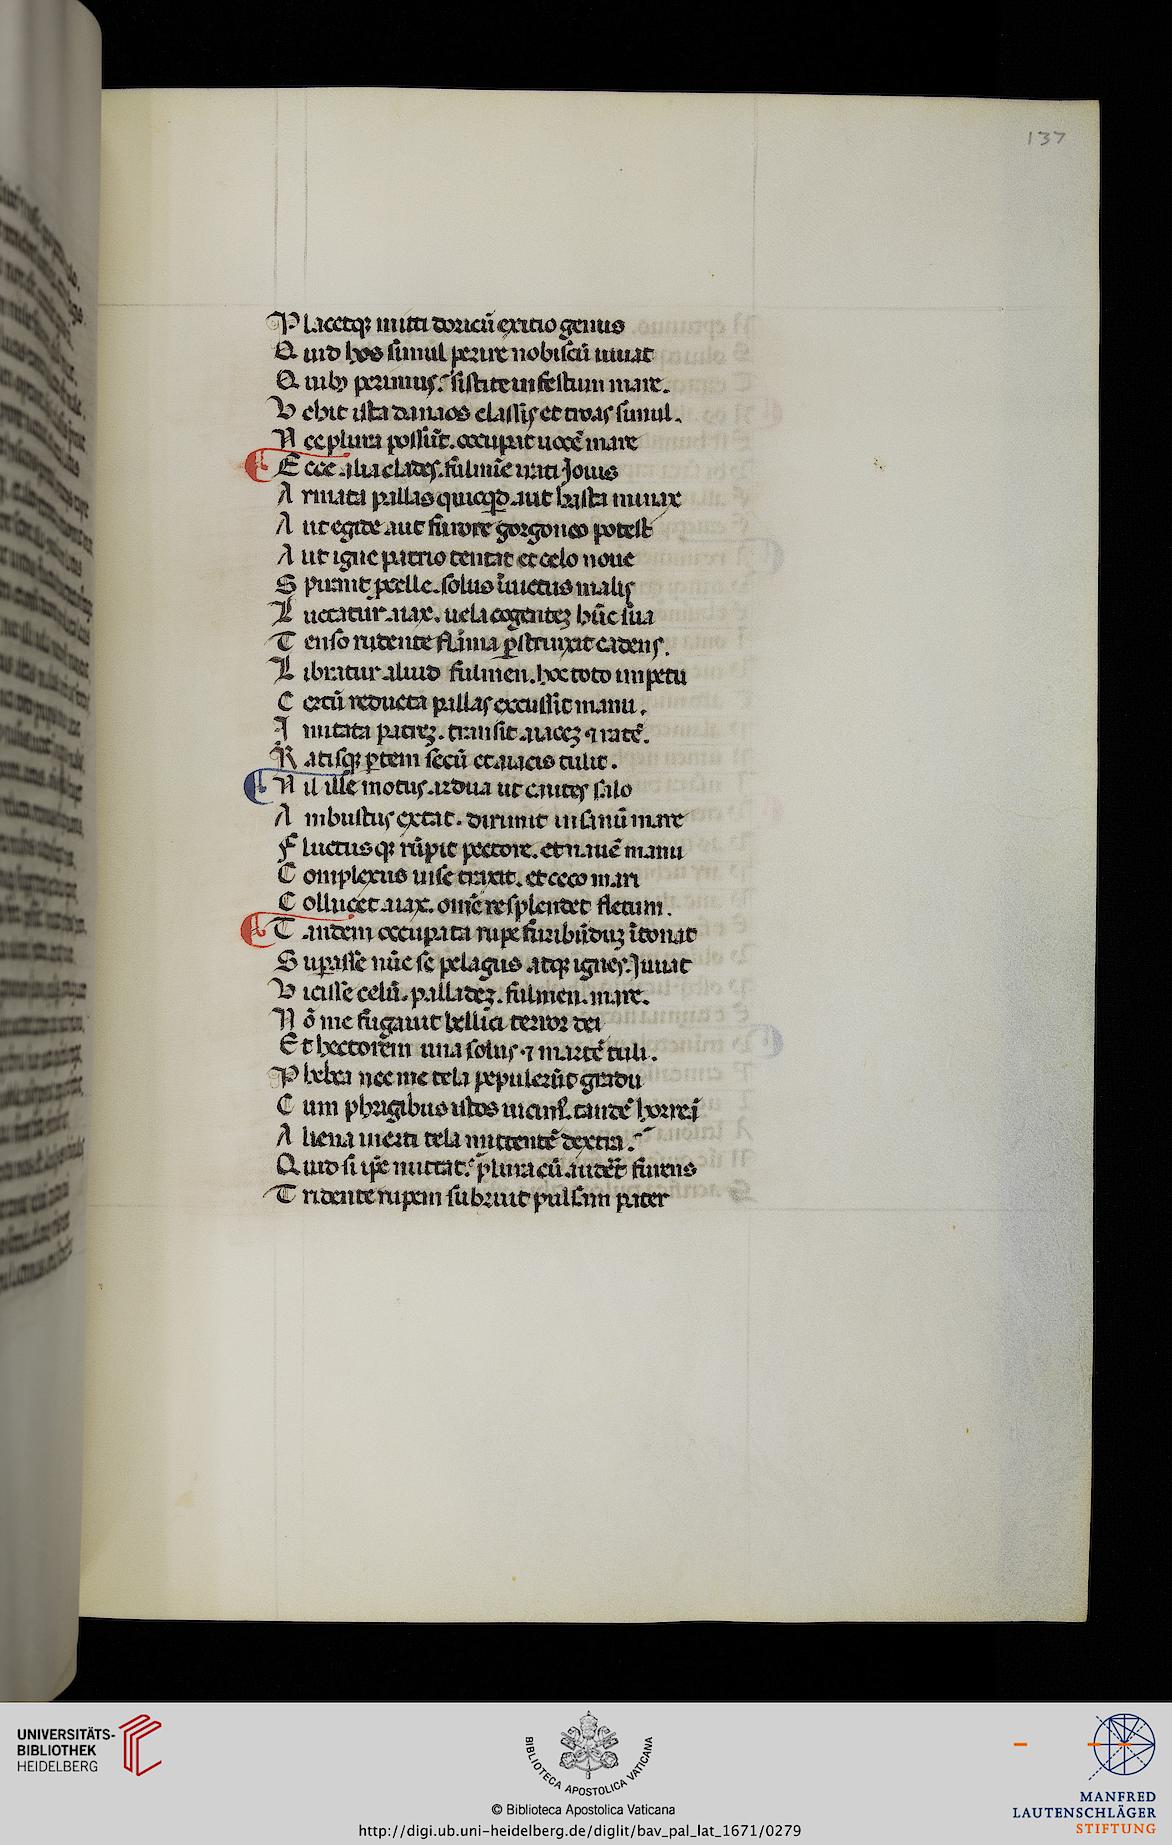 137
Placetq; mitti doricū exitio genus
Quid hos simul perire nobiscū iuuat
Quib; perimus. sistite infestum mare.
Vehit ista danaos classis et troas simul.
Nec plura possūt. occupat uocē mare
Ecce alia clades. fulmīe irati Jouis
Armata pallas quicqd aut hasta minax
Aut egide aut furore gorgoneo potest
Aut igne patrio tentat et celo noue
Spirant pcelle. solus īuictus malis
Luctatur aiax. uela cogentez hūc sua
Tenso rudente flāma pstruixit cadens.
Libratur aliud fulmen. hoc toto impetu
Certū reducta pallas excussit manu.
Imitata patrez. transit aiacez ⁊ ratē.
Ratisq; ptem secū et aiacis tulit.
Nil ille motus ardua ut cautes salo
Ambustus extat. dirimit insanū mare
Fluctusq; rūpit pectore. et nauē manu
Complexus in se traxit. et ceco mari
Collucet aiax. omē resplendet fletum.
Tandem occupata rupe furibūduz ītonat
Supasse nūc se pelagus atq; ignes. Juuat
Vicisse celū. palladez. fulmen. mare.
Nō me fugauit bellici terror dei
Et hectorem una solus ⁊ martē tuli.
Phebea nec me tela pepulerūt gradu
Cum phrigibus istos uicim⁹. tandē horreā
Aliena inerti tela mittentē dextra.
Quid si ipe mittat. plura cū auderet furens
Tridente rupem subruit pulsam pater
UNIVERSITÄTS-
BIBLIOTHEK
HEIDELBERG
BIBLIOTECA APOSTOLICA VATICANA
© Biblioteca Apostolica Vaticana
http://digi.ub.uni-heidelberg.de/diglit/bav_pal_lat_1671/0279
MANFRED
LAUTENSCHLÄGER
STIFTUNG